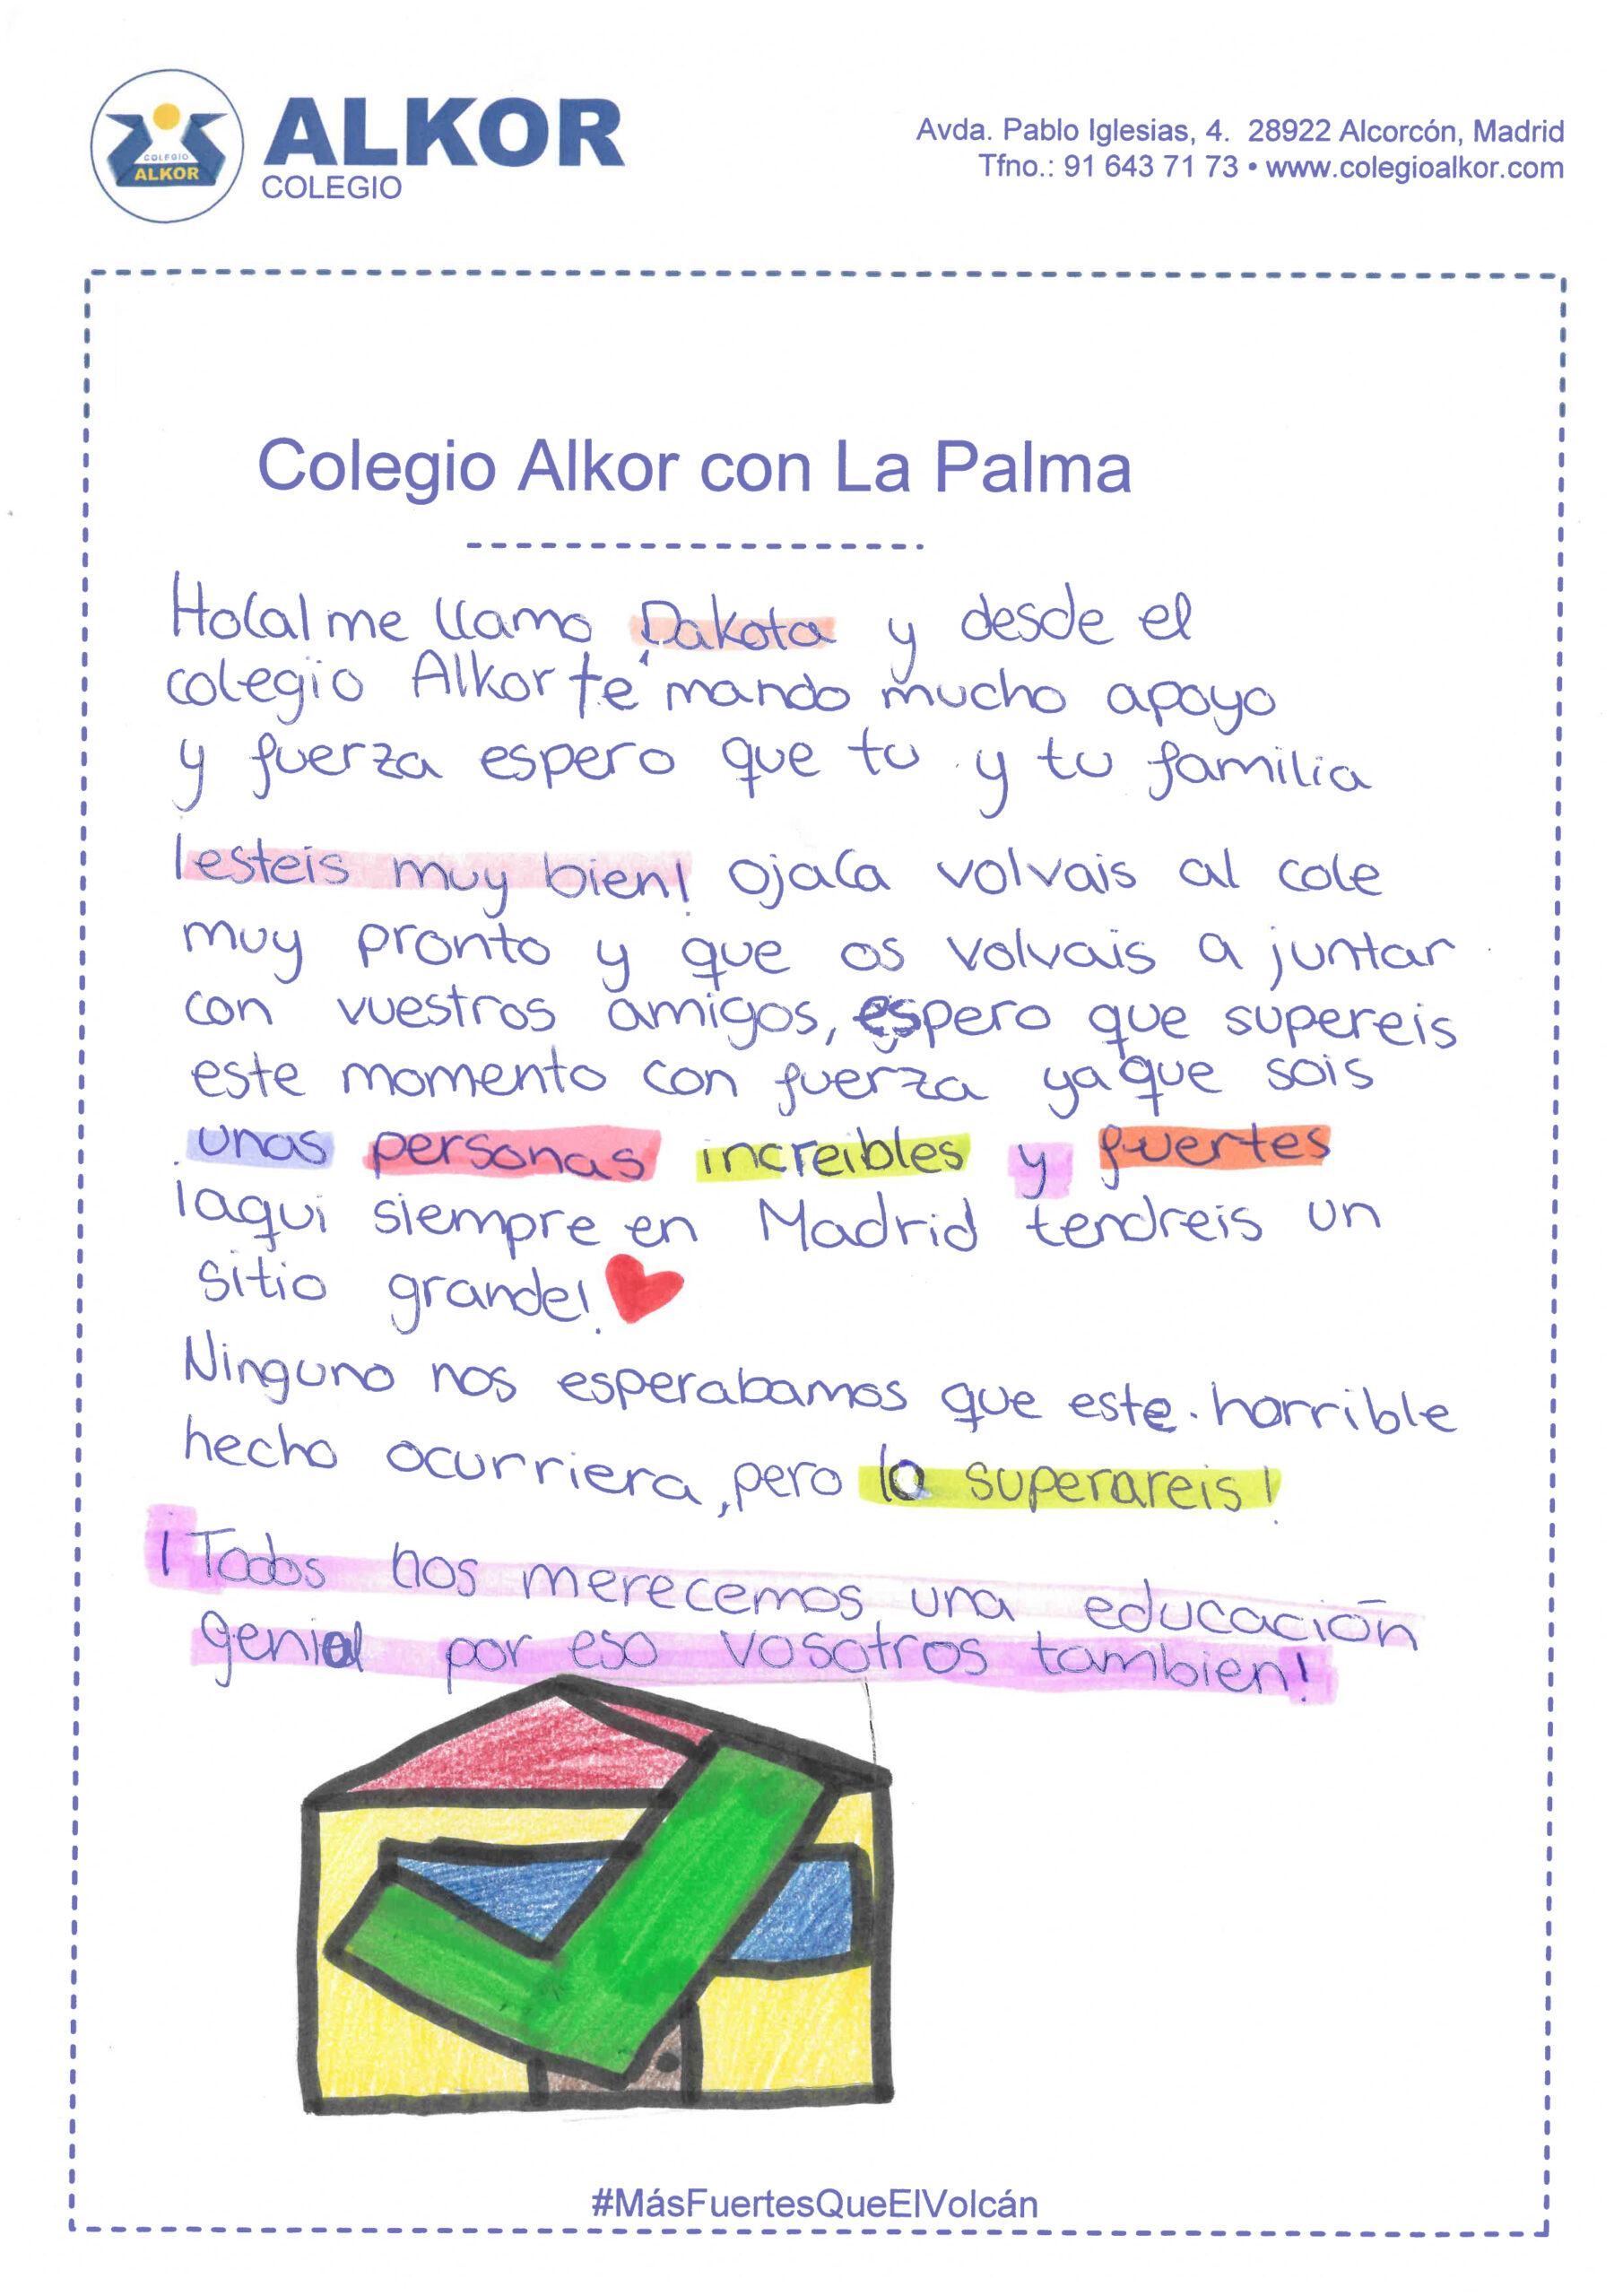 COLEGIO
ALKOR
ALKOR
COLEGIO
Avda. Pablo Iglesias, 4. 28922 Alcorcón, Madrid
Tfno.: 91 643 71 73 • www.colegioalkor.com
Colegio Alkor con La Palma
Hola! me llamo Dakota y desde el
colegio Alkor te mando mucho apoyo
y fuerza espero que tu y tu familia
¡esteis muy bien! ojala volvais al cole
muy pronto y que os volvais a juntar
con vuestros amigos, espero que supereis
este momento con fuerza ya que sois
unas personas increibles y fuertes
¡aqui siempre en Madrid tendreis un
sitio grande!
Ninguno nos esperabamos que este horrible
hecho ocurriera, pero lo superareis!
¡Todos nos merecemos una educación
genial por eso vosotros tambien!
#MásFuertesQueElVolcán